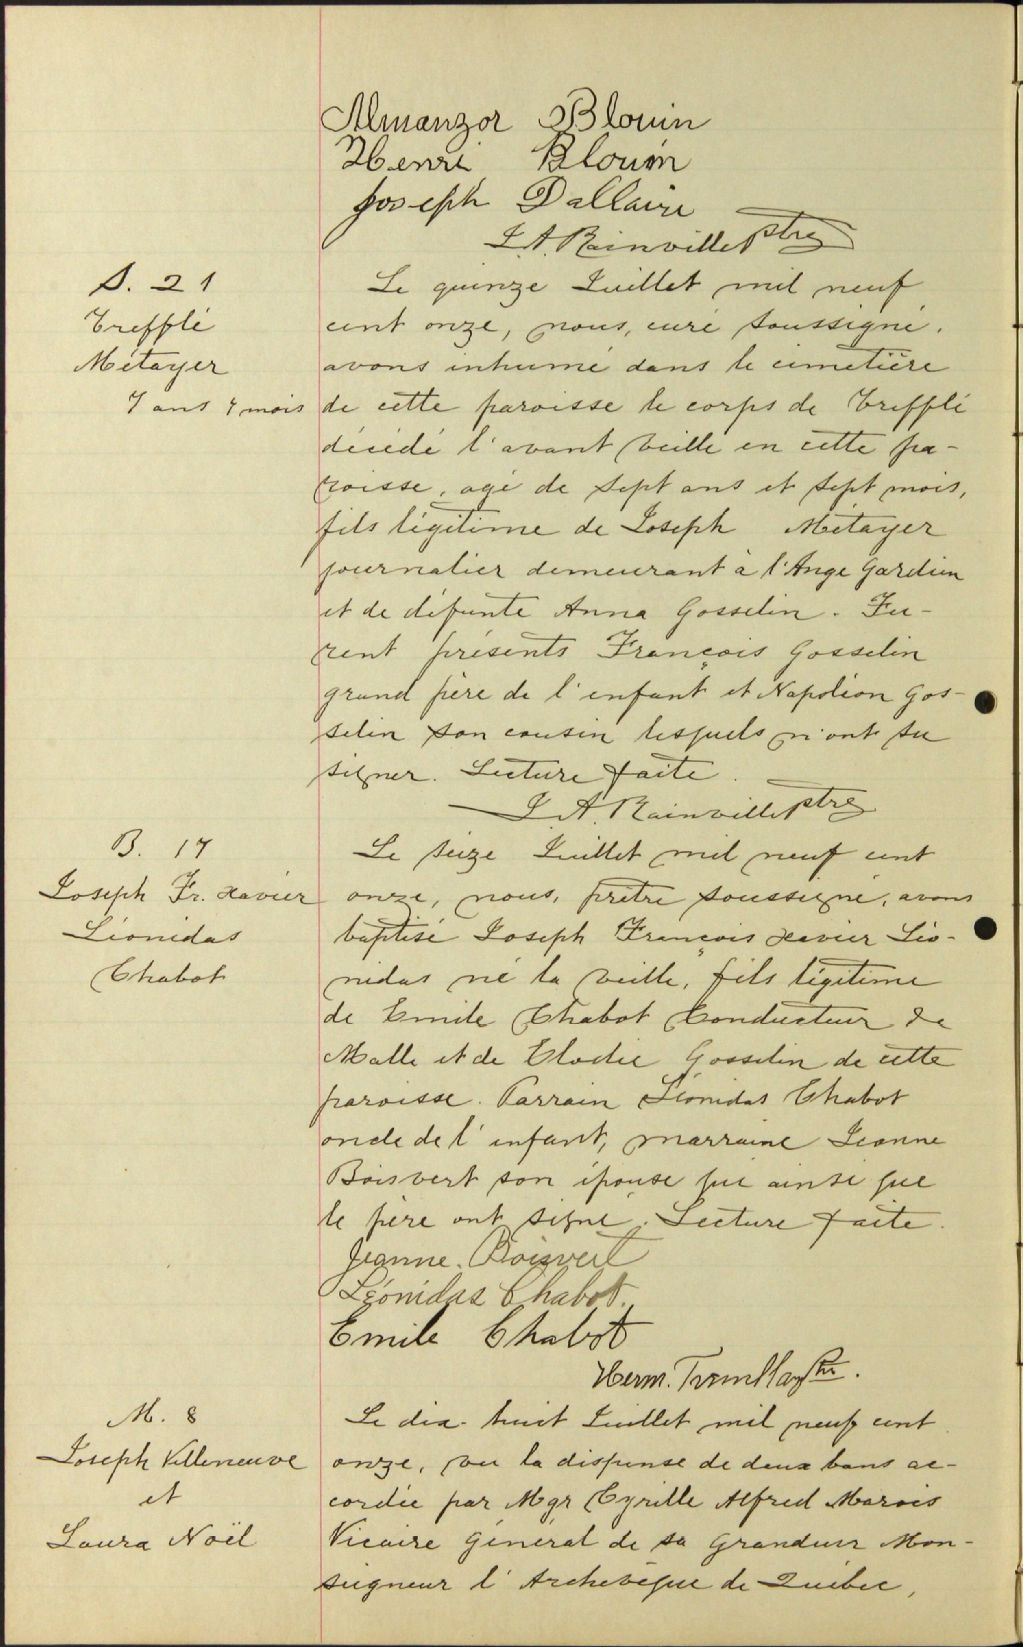 Almanzor Blouin
Henri Blouin
Joseph Dallaire
J. A. Rainville Ptre
S. 21
Trefflé
Métayer
7 ans 7 mois
Le quinze Juillet mil neuf
cent onze, nous, curé soussigné,
avons inhumé dans le cimetière
de cette paroisse le corps de Trefflé
décédé l'avant veille en cette pa-
roisse, agé de sept ans et sept mois,
fils légitime de Joseph Métayer
journalier demeurant à l'Ange Gardien
et de défunte Anna Gosselin. Fu-
rent présents François Gosselin
grand père de l'enfant et Napoléon Gos-
selin son cousin lesquels n'ont su
signer. Lecture faite.
J. A. Rainville Ptre
B. 17
Joseph Fr. Xavier
Léonidas
Chabot
Le seize Juillet mil neuf cent
onze, nous, prêtre soussigné, avons
baptisé Joseph François Xavier Léo-
nidas né la veille, fils légitime
de Emile Chabot Conducteur de
Malle et de Elodie Gosselin de cette
paroisse. Parrain Léonidas Chabot
oncle de l'enfant, marraine Jeanne
Boisvert son épouse qui ainsi que
le père ont signé. Lecture faite.
Jeanne. Boisvert
Léonidas Chabot.
Emile Chabot
Herm. Tremblay Ptre.
M. 8
Joseph Villeneuve
et
Laura Noël
Le dix-huit Juillet mil neuf cent
onze, vu la dispense de deux bans ac-
cordée par Mgr Cyrille Alfred Marois
Vicaire Général de sa Grandeur Mon-
seigneur l'Archevêque de Québec,